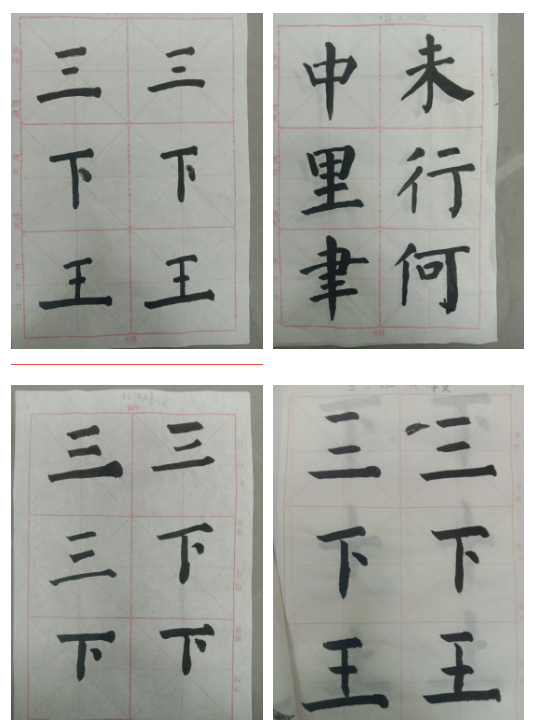 三 三
下 下
王 王
中 未
里 行
聿 何
三 三
三 下
下 下
三 三
下 下
王 王